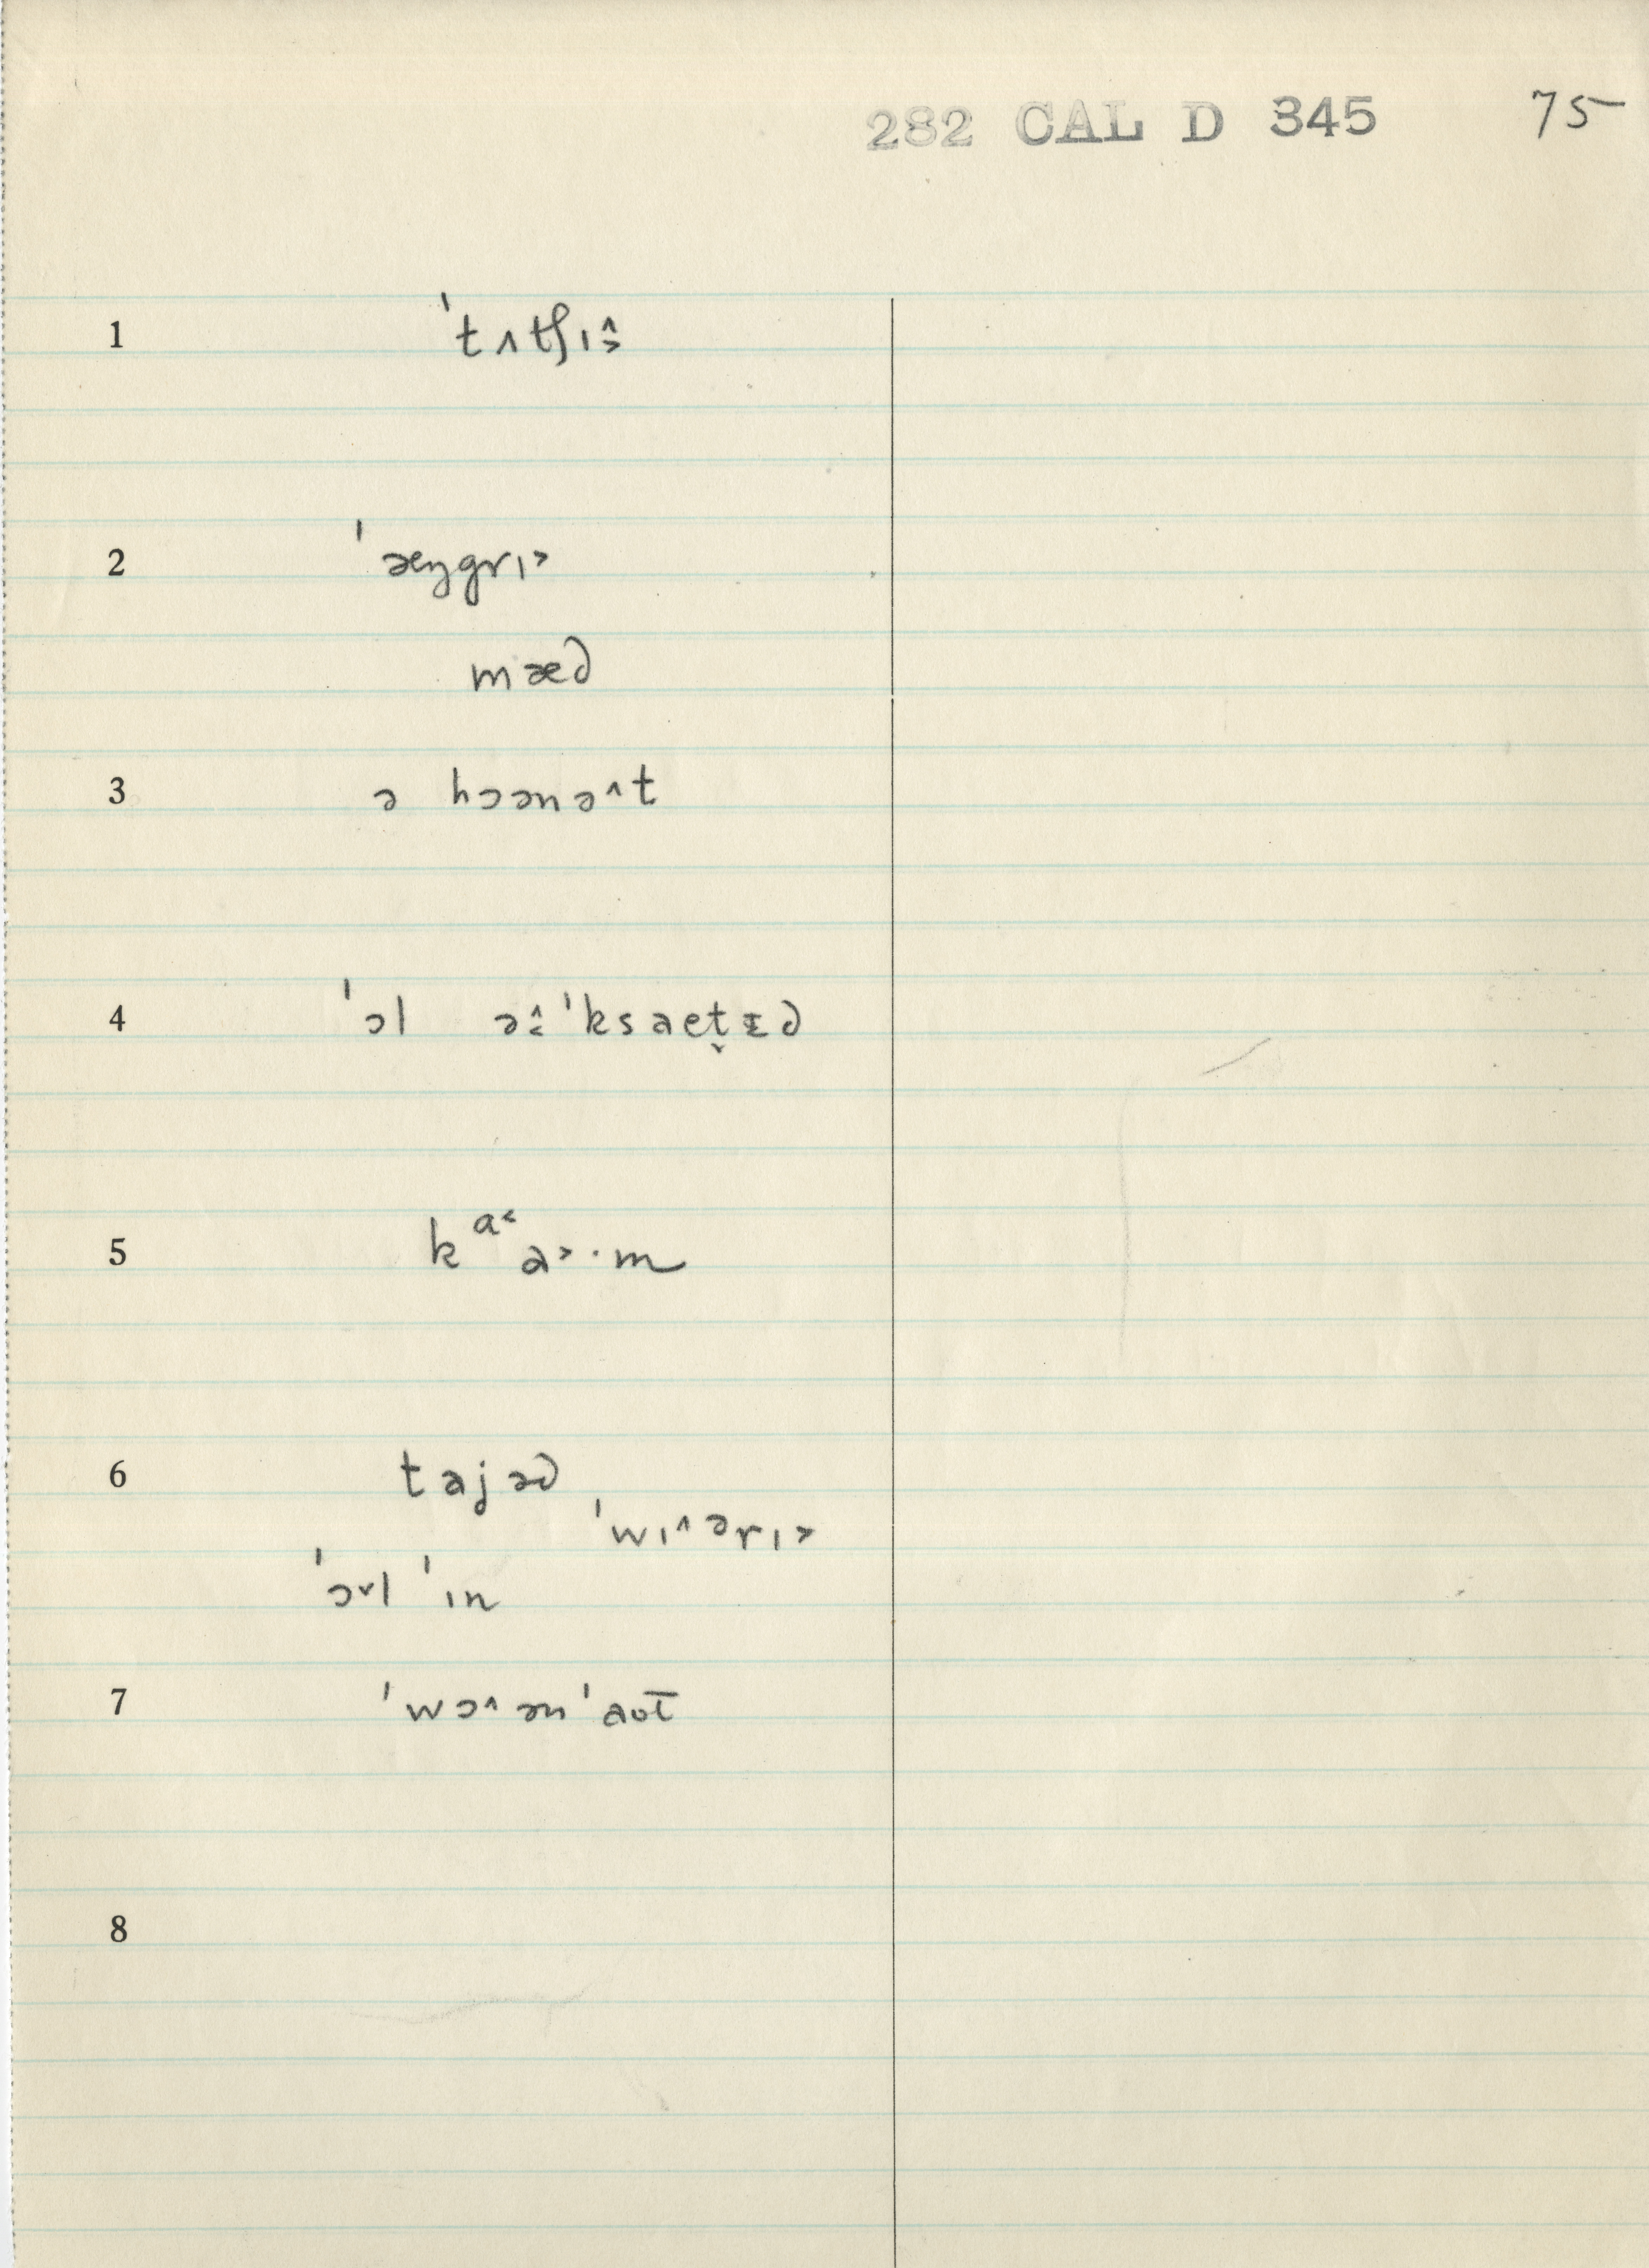 282 CAL D 345 75
1 ˈtʌtʃɪ˄˃
2 ˈæŋgrɪ˃
mæd
3 ə hɔənə˄t
4 ˈɔl ə˄˂ˈksaet̬ɪd
5 k ᵃ˂ a˃·m
6 tajəd
ˈwɪ˄ərɪ˃
ˈɔ˅l ˈɪn
7 ˈwɔ˄ənˈaʊt̅
8